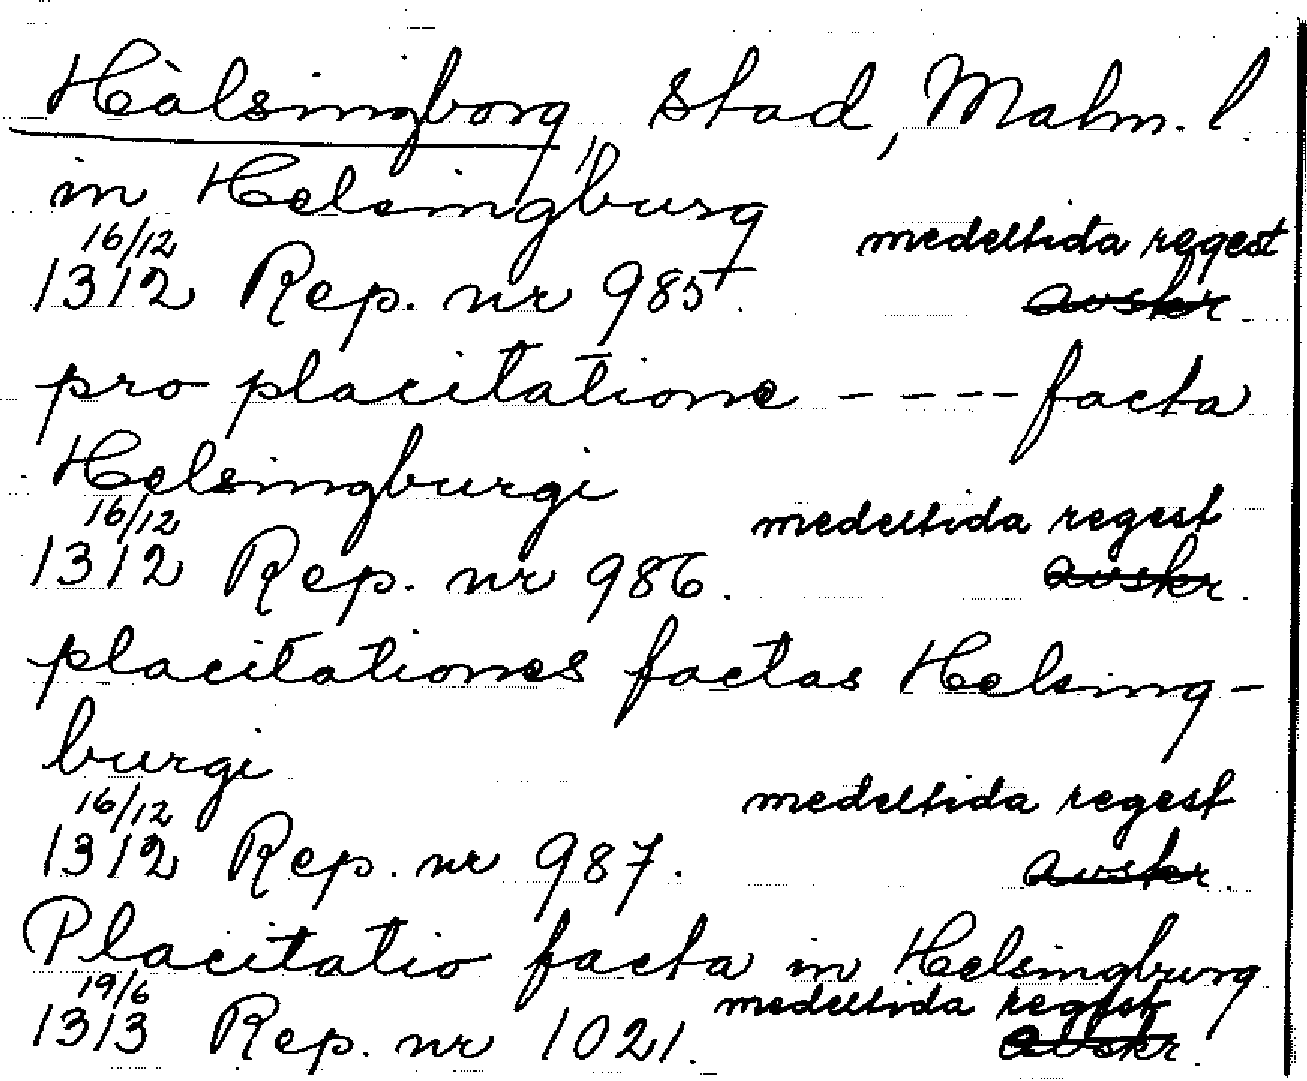 Hälsingborg, stad, Malm. l.
in Helsingburg
16/12
1312 Rep. nr 985. medeltida regest avskr
pro placitatione ---- facta
Helsingburgi
16/12
1312 Rep. nr 986. medeltida regest avskr.
placitationes factas Helsing-
burgi
16/12
1312 Rep. nr 987. medeltida regest avskr.
Placitatio facta in Helsingburg
19/6
1313 Rep. nr 1021. medeltida regest avskr.